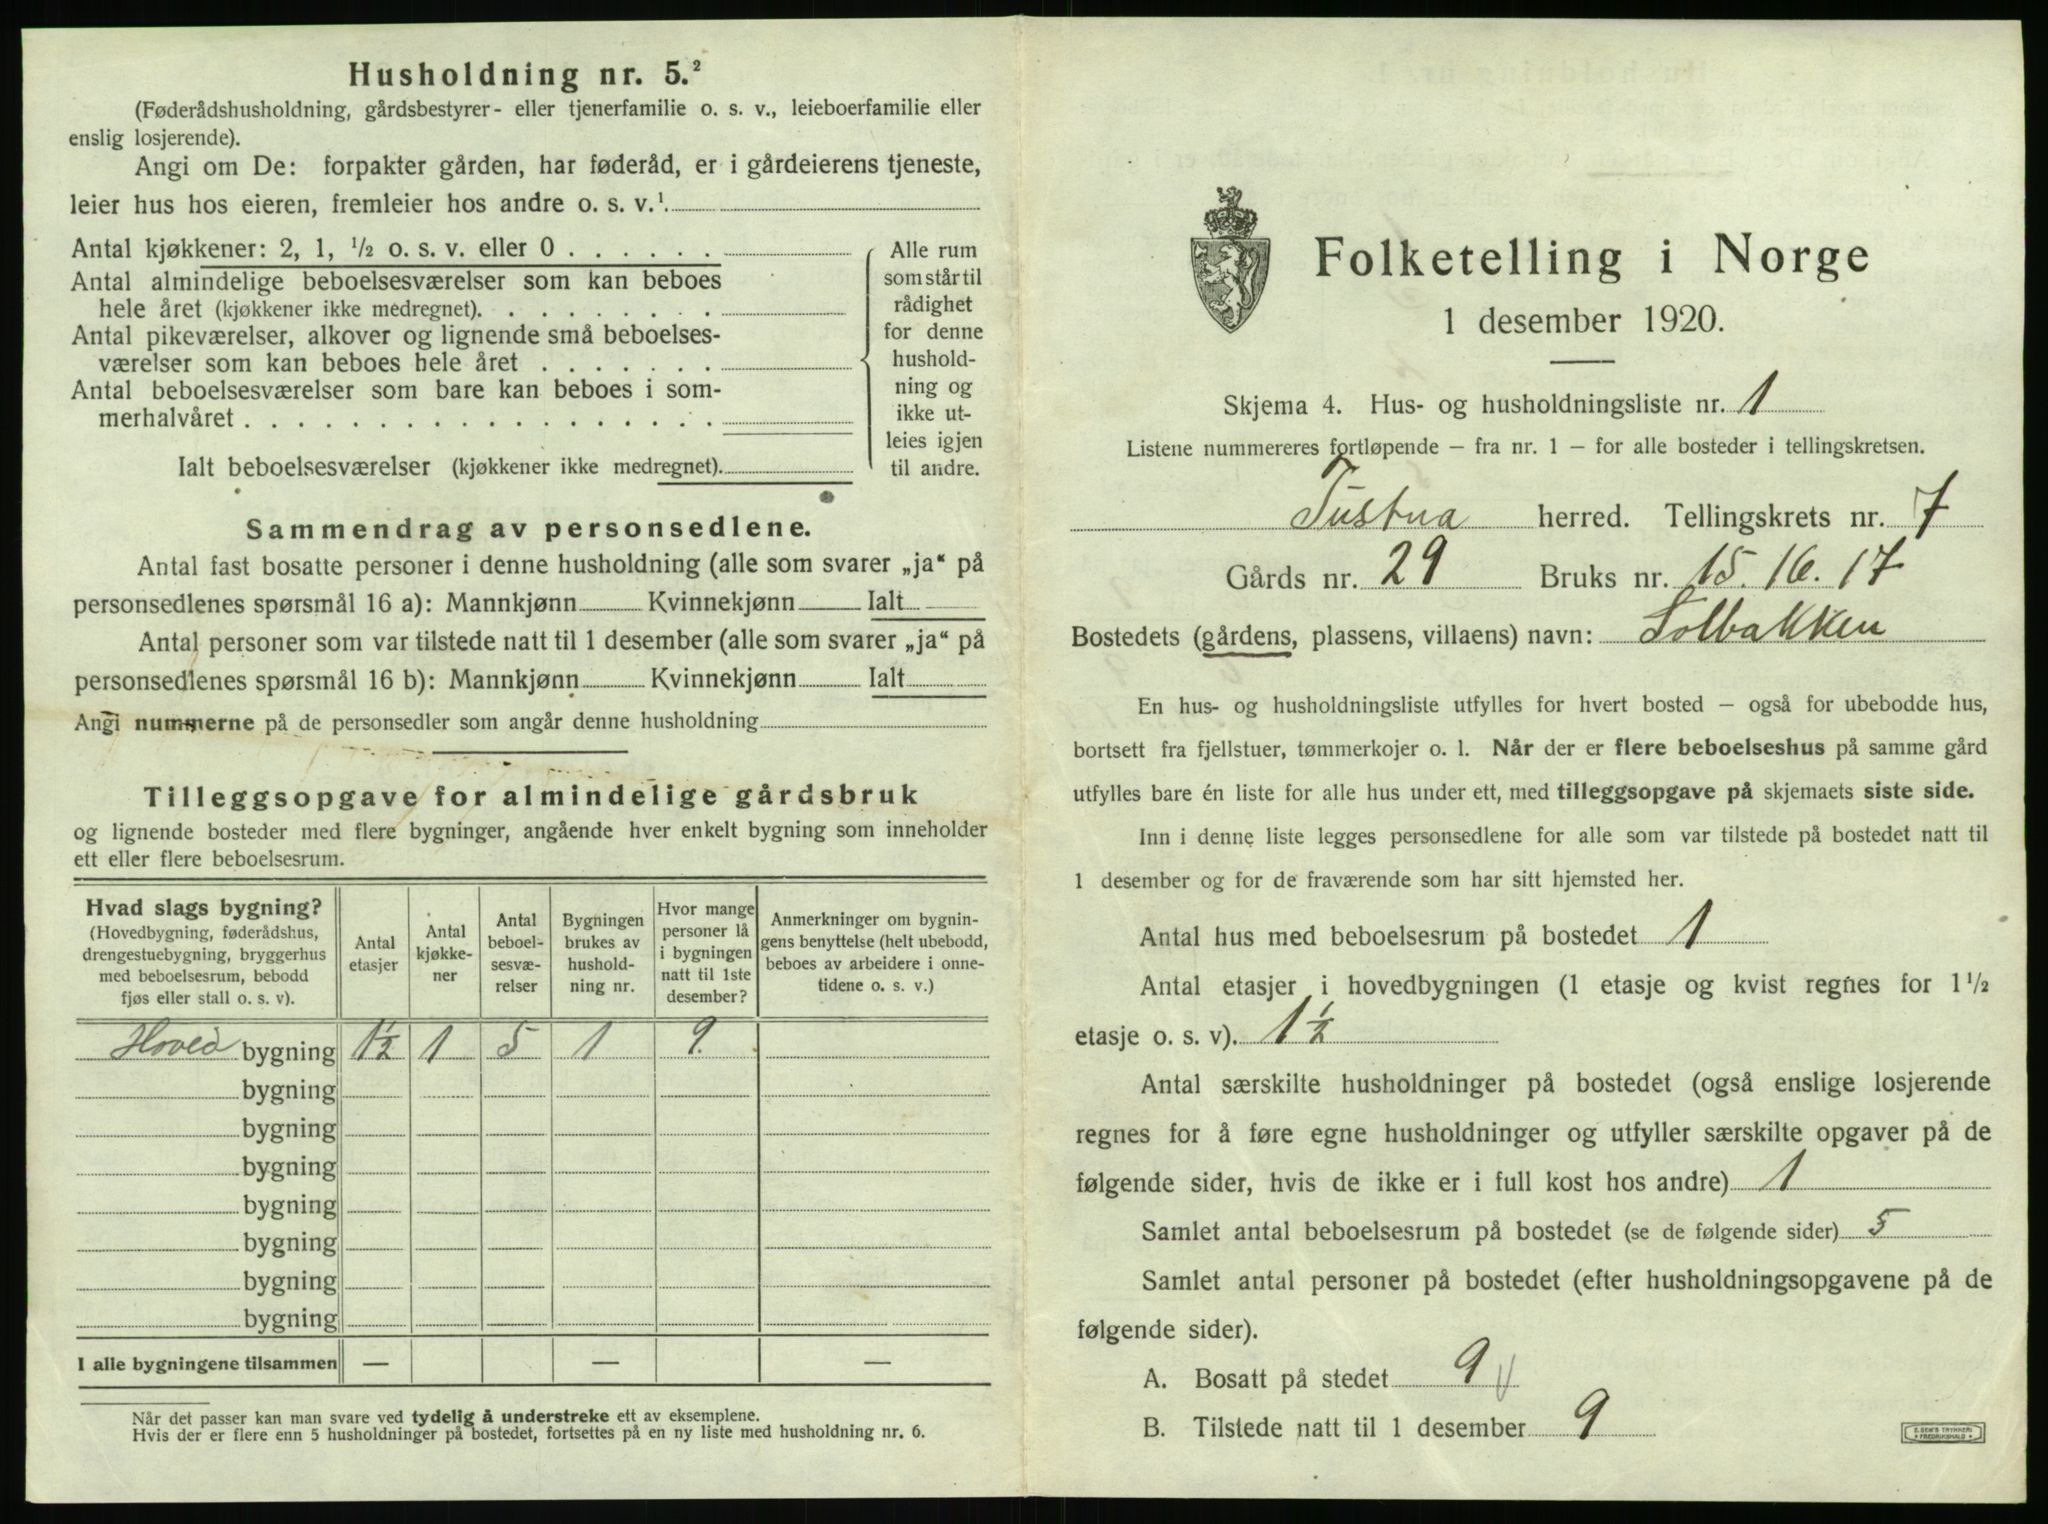 Husholdning nr. 5.²
(Føderådshusholdning, gårdsbestyrer- eller tjenerfamilie o. s. v., leieboerfamilie eller
enslig losjerende).
Angi om De: forpakter gården, har føderåd, er i gårdeierens tjeneste,
leier hus hos eieren, fremleier hos andre o. s. v.¹
Antal kjøkkener: 2, 1, ½ o. s. v. eller 0 . . . . . .
Antal almindelige beboelsesværelser som kan beboes
hele året (kjøkkener ikke medregnet). . . . . . . . .
Antal pikeværelser, alkover og lignende små beboelses-
værelser som kan beboes hele året . . . . . . .
Antal beboelsesværelser som bare kan beboes i som-
merhalvåret . . . . . . . . . . . . . . . . . .
Ialt beboelsesværelser (kjøkkener ikke medregnet).
Alle rum
som står til
rådighet
for denne
hushold-
ning og
ikke ut-
leies igjen
til andre.
Sammendrag av personsedlene.
Antal fast bosatte personer i denne husholdning (alle som svarer „ja“ på
personsedlenes spørsmål 16 a): Mannkjønn Kvinnekjønn Ialt
Antal personer som var tilstede natt til 1 desember (alle som svarer „ja“ på
personsedlenes spørsmål 16 b): Mannkjønn Kvinnekjønn Ialt
Angi nummerne på de personsedler som angår denne husholdning
Tilleggsopgave for almindelige gårdsbruk
og lignende bosteder med flere bygninger, angående hver enkelt bygning som inneholder
ett eller flere beboelsesrum.
Hvad slags bygning?
(Hovedbygning, føderådshus,
drengestuebygning, bryggerhus
med beboelsesrum, bebodd
fjøs eller stall o. s. v).
Antal
etasjer
Antal
kjøkke-
ner
Antal
beboel-
sesvæ-
relser
Bygningen
brukes av
hushold-
ning nr.
Hvor mange
personer lå
i bygningen
natt til 1ste
desember?
Anmerkninger om bygnin-
gens benyttelse (helt ubebodd,
beboes av arbeidere i onne-
tidene o. s. v.)
Hoved bygning 1½ 1 5 1 9.
bygning
bygning
bygning
bygning
bygning
bygning
bygning
I alle bygningene tilsammen — — —
Når det passer kan man svare ved tydelig å understreke ett av eksemplene.
Hvis der er flere enn 5 husholdninger på bostedet, fortsettes på en ny liste med husholdning nr. 6.
Folketelling i Norge
1 desember 1920.
Skjema 4. Hus- og husholdningsliste nr. 1
Listene nummereres fortløpende — fra nr. 1 — for alle bosteder i tellingskretsen.
Tustna herred. Tellingskrets nr. 7
Gårds nr. 29 Bruks nr. 15. 16. 17
Bostedets (gårdens, plassens, villaens) navn: Solbakken
En hus- og husholdningsliste utfylles for hvert bosted — også for ubebodde hus,
bortsett fra fjellstuer, tømmerkojer o. l. Når der er flere beboelseshus på samme gård
utfylles bare én liste for alle hus under ett, med tilleggsopgave på skjemaets siste side.
Inn i denne liste legges personsedlene for alle som var tilstede på bostedet natt til
1 desember og for de fraværende som har sitt hjemsted her.
Antal hus med beboelsesrum på bostedet 1
Antal etasjer i hovedbygningen (1 etasje og kvist regnes for 1½
etasje o. s. v). 1½
Antal særskilte husholdninger på bostedet (også enslige losjerende
regnes for å føre egne husholdninger og utfyller særskilte opgaver på de
følgende sider, hvis de ikke er i full kost hos andre) 1
Samlet antal beboelsesrum på bostedet (se de følgende sider) 5
Samlet antal personer på bostedet (efter husholdningsopgavene på de
følgende sider).
A. Bosatt på stedet 9
B. Tilstede natt til 1 desember 9